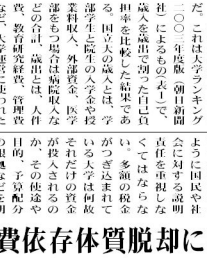 だ。これは大学ランキング
二〇〇一年度版(朝日新聞
社)によるもので(表1)で、
歳入を歳出で割った自己負
担率を比較した結果であ
る。国立の大学の歳入とは、学
部学生と院生の入学金や授
業料収入、外部資金、医学
部をもつ場合は病院収入な
どの合計、歳出とは、人件
費、教育研究経費、管理費
など、大学運営に使われた
ように国民や社
会に対する説明
責任を重視しな
くてはならな
い。多額の税金
がつぎ込まれて
いる大学は何故
それだけの資金
が投入されるの
か、その使途や
目的、予算配分
の根拠などを明
費依存体質脱却に